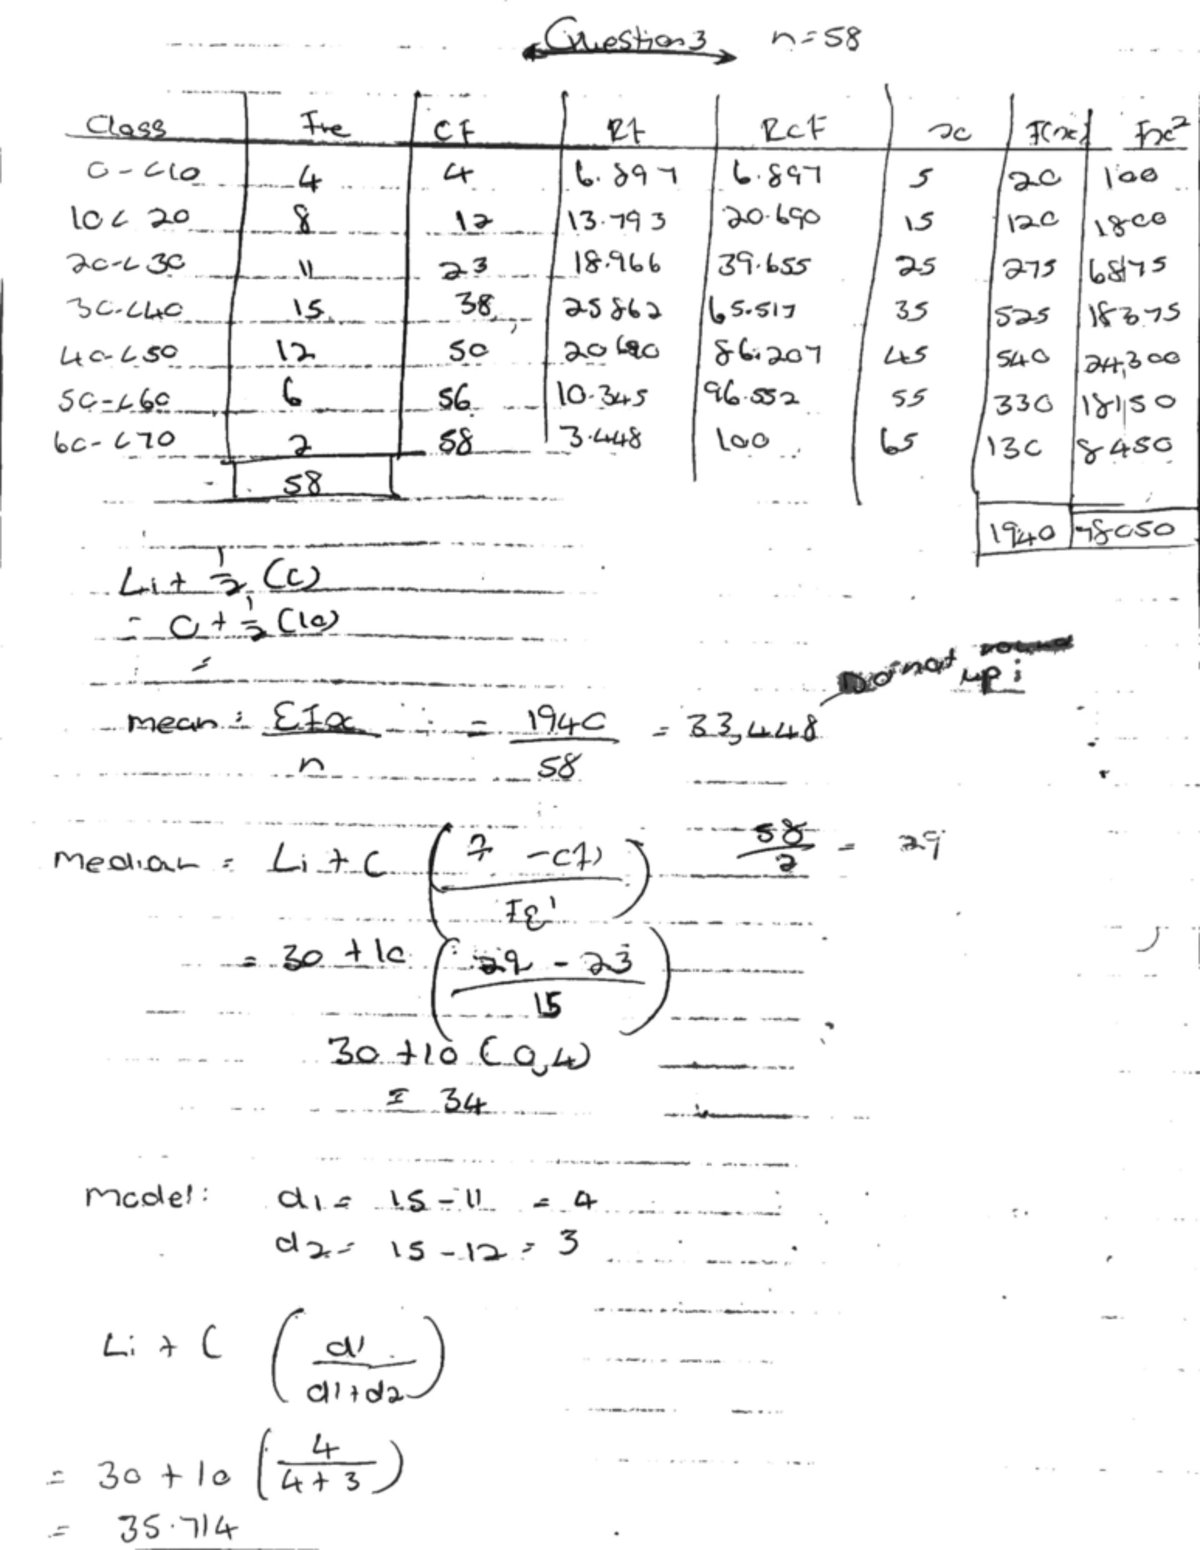 Question 3 n=58
Class Fre CF Rf RCF x F(x) Fx²
0-<10 4 4 6.897 6.897 5 20 100
10<20 8 12 13.793 20.690 15 120 1800
20-<30 11 23 18.966 39.655 25 275 6875
30-<40 15 38 25862 65.517 35 525 18375
40-<50 12 50 20690 86.207 45 540 24,300
50-<60 6 56 10.345 96.552 55 330 18150
60-<70 2 58 3.448 100 65 130 8450
58
1940 78050
Li + 1/2 (C)
= 0 + 1/2 (10)
=
Do not round up
mean: Σfx / n = 1940 / 58 = 33,448
median = Li + C ( - cf) 58/2 = 29
= 30 + 10 (29 - 23 / 15)
30 + 10 (0,4)
= 34
model: d1 = 15 - 11 = 4
d2 = 15 - 12 = 3
Li + C (d1 / d1+d2)
= 30 + 10 (4 / 4+3)
= 35.714